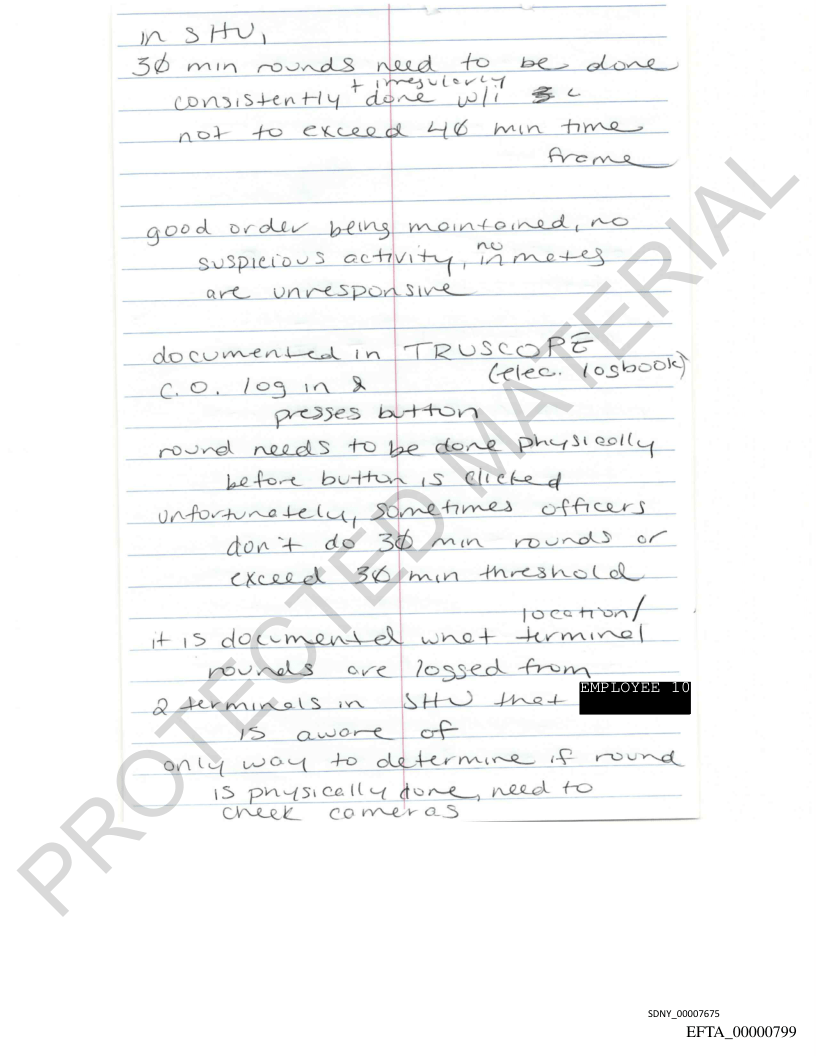 in SHU,
30 min rounds need to be done
consistently + irregularly done w/i
not to exceed 40 min time
frame
good order being maintained, no
suspicious activity, no inmates
are unresponsive
documented in TRUSCOPE
(elec. logbook)
C.O. log in &
presses button
round needs to be done physically
before button is clicked
unfortunately, sometimes officers
don't do 30 min rounds or
exceed 30 min threshold
location/
it is documented what terminal
rounds are logged from
2 terminals in SHU that EMPLOYEE 10
is aware of
only way to determine if round
is physically done, need to
check cameras
PROTECTED MATERIAL
SDNY_00007675
EFTA_00000799